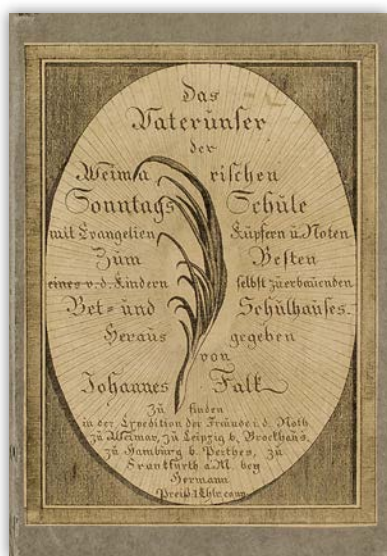 Das
Vaterunser
der
Weimarischen
Sonntags Schule
mit Evangelien Kupfern u. Noten
Zum Besten
eines v. d. Kindern selbst zu erbauenden
Bet- und Schulhauses.
Heraus gegeben
von
Johannes Falk
Zu finden
in der Expedition der Freunde i. d. Noth
zu Weimar, zu Leipzig b. Brockhaus.
zu Hamburg b. Perthes, zu
Frankfurth a. M. bey
Hermann
Preiß 1 thlr.